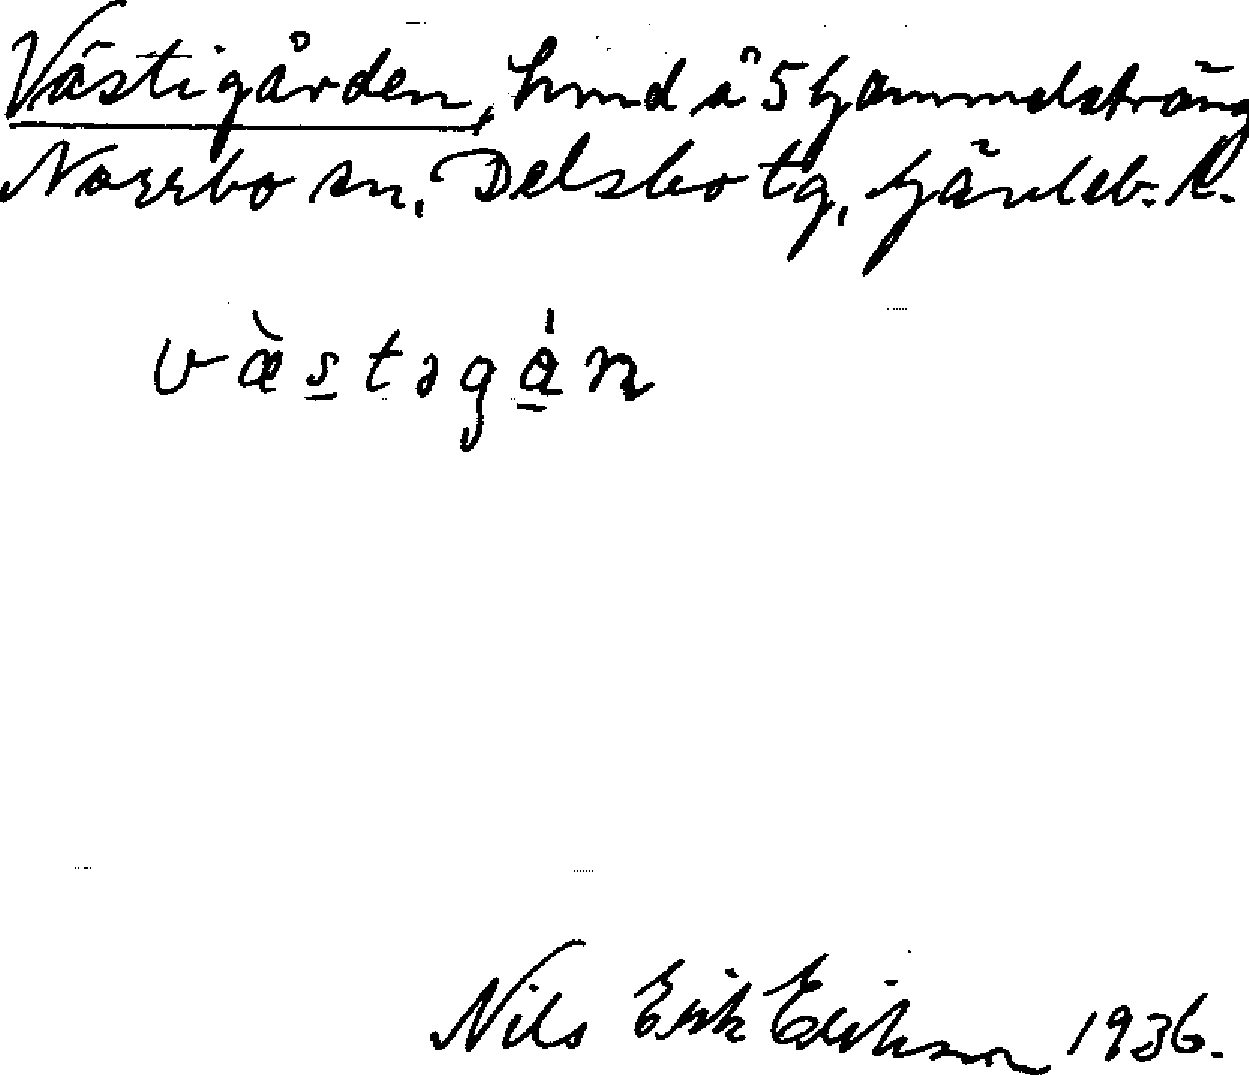 Västigården, hmd å 5 Gammelsträng
Norrbo sn, Delsbo tg, Gävleb. l.
v æ̀ s̲ t ə g ǻ̲ n
Nils Erik Eriksson 1936.